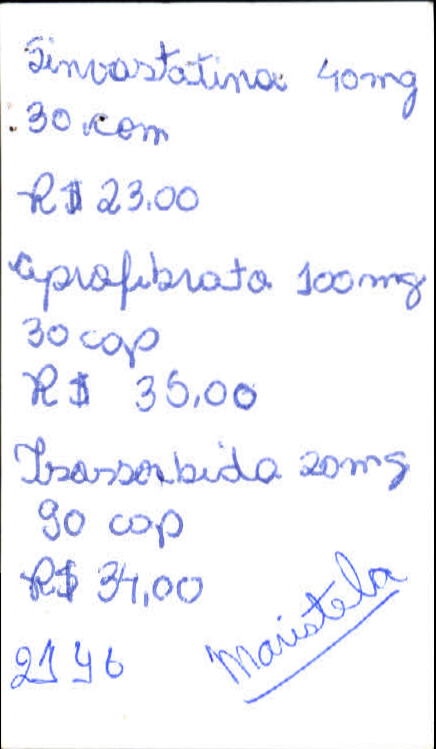 Sinvastatina 40mg
30 com
R$ 23.00
Ciprofibrato 100mg
30 cap
R$ 35,00
Isossorbida 20mg
90 cap
R$ 34,00
2146
Maristela